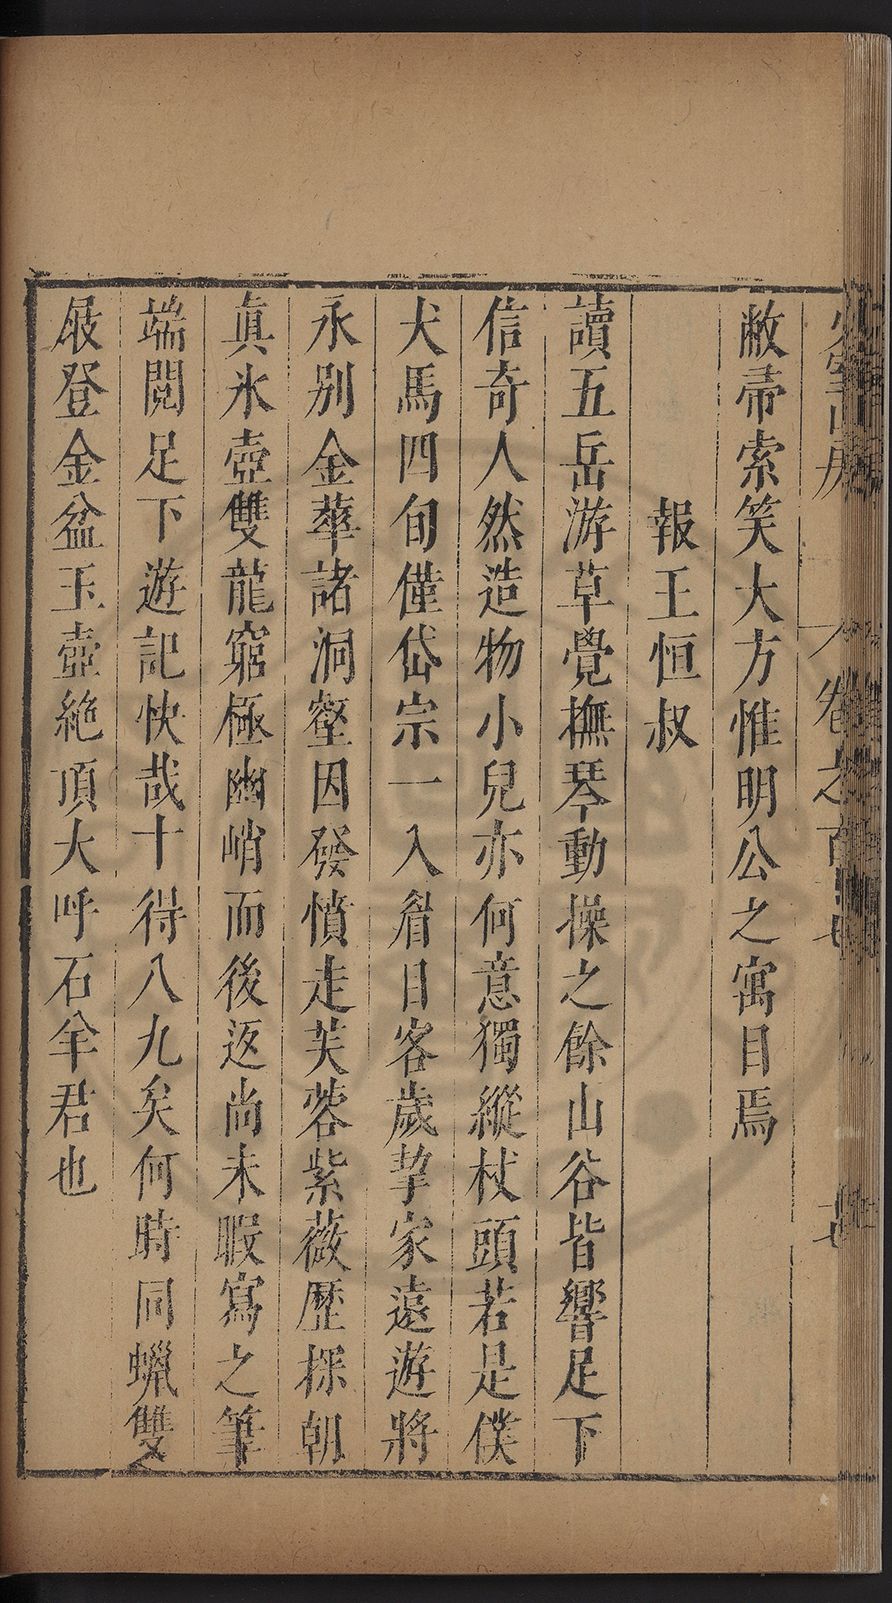 敝帚索笑大方惟明公之寓目焉
報王恒叔
讀五岳游草覺撫琴動操之餘山谷皆響足下
信奇人然造物小兒亦何意獨縱杖頭若是僕
犬馬四旬僅岱宗一入眉目客歲挈家遠遊將
永别金華諸洞壑因發憤走芙蓉紫薇歷探朝
真氷壺雙龍窮極幽峭而後返尚未暇寫之筆
端閱足下遊記快哉十得八九矣何時同蠟雙
屐登金盆玉壺絶頂大呼石羊君也
卷之百